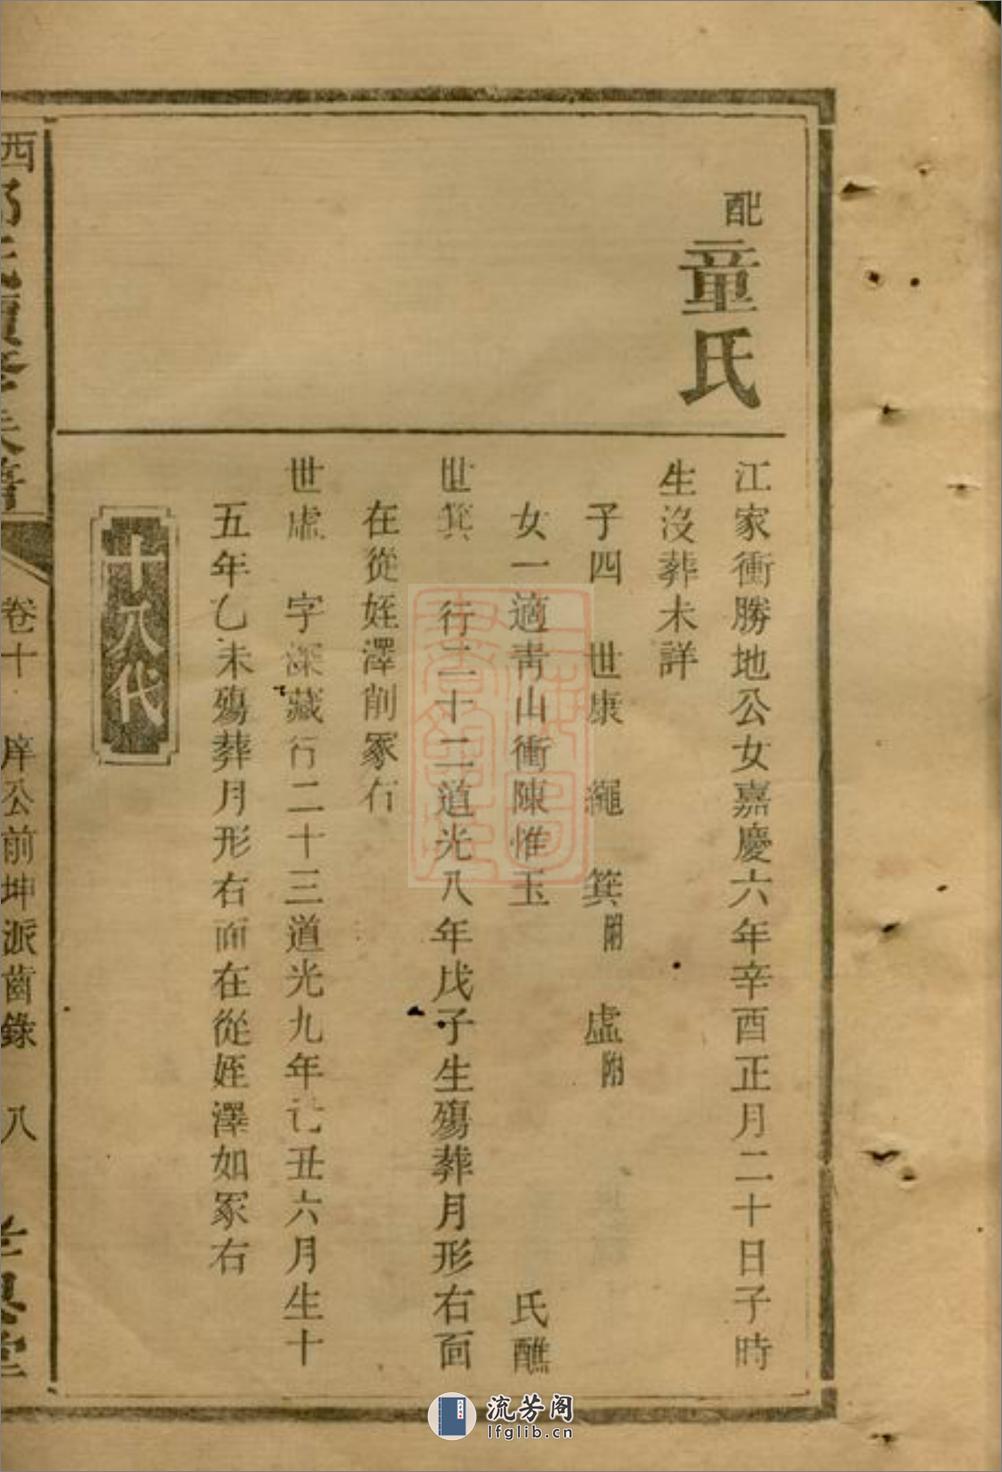 配童氏
江家衝勝地公女嘉慶六年辛酉正月二十日子時
生沒葬未詳
子四 世康 繩 箕附 虛附
女一適青山衝陳惟玉 氏醮
世箕 行二十二道光八年戊子生殤葬月形右面
在從姪澤削冢右
世虛 字深藏行二十三道光九年己丑六月生十
五年乙未殤葬月形右面在從姪澤如冢右
十八代
西 氏續修族譜 卷十 庠公前坤派齒錄 八
流芳阁
lfglib.cn